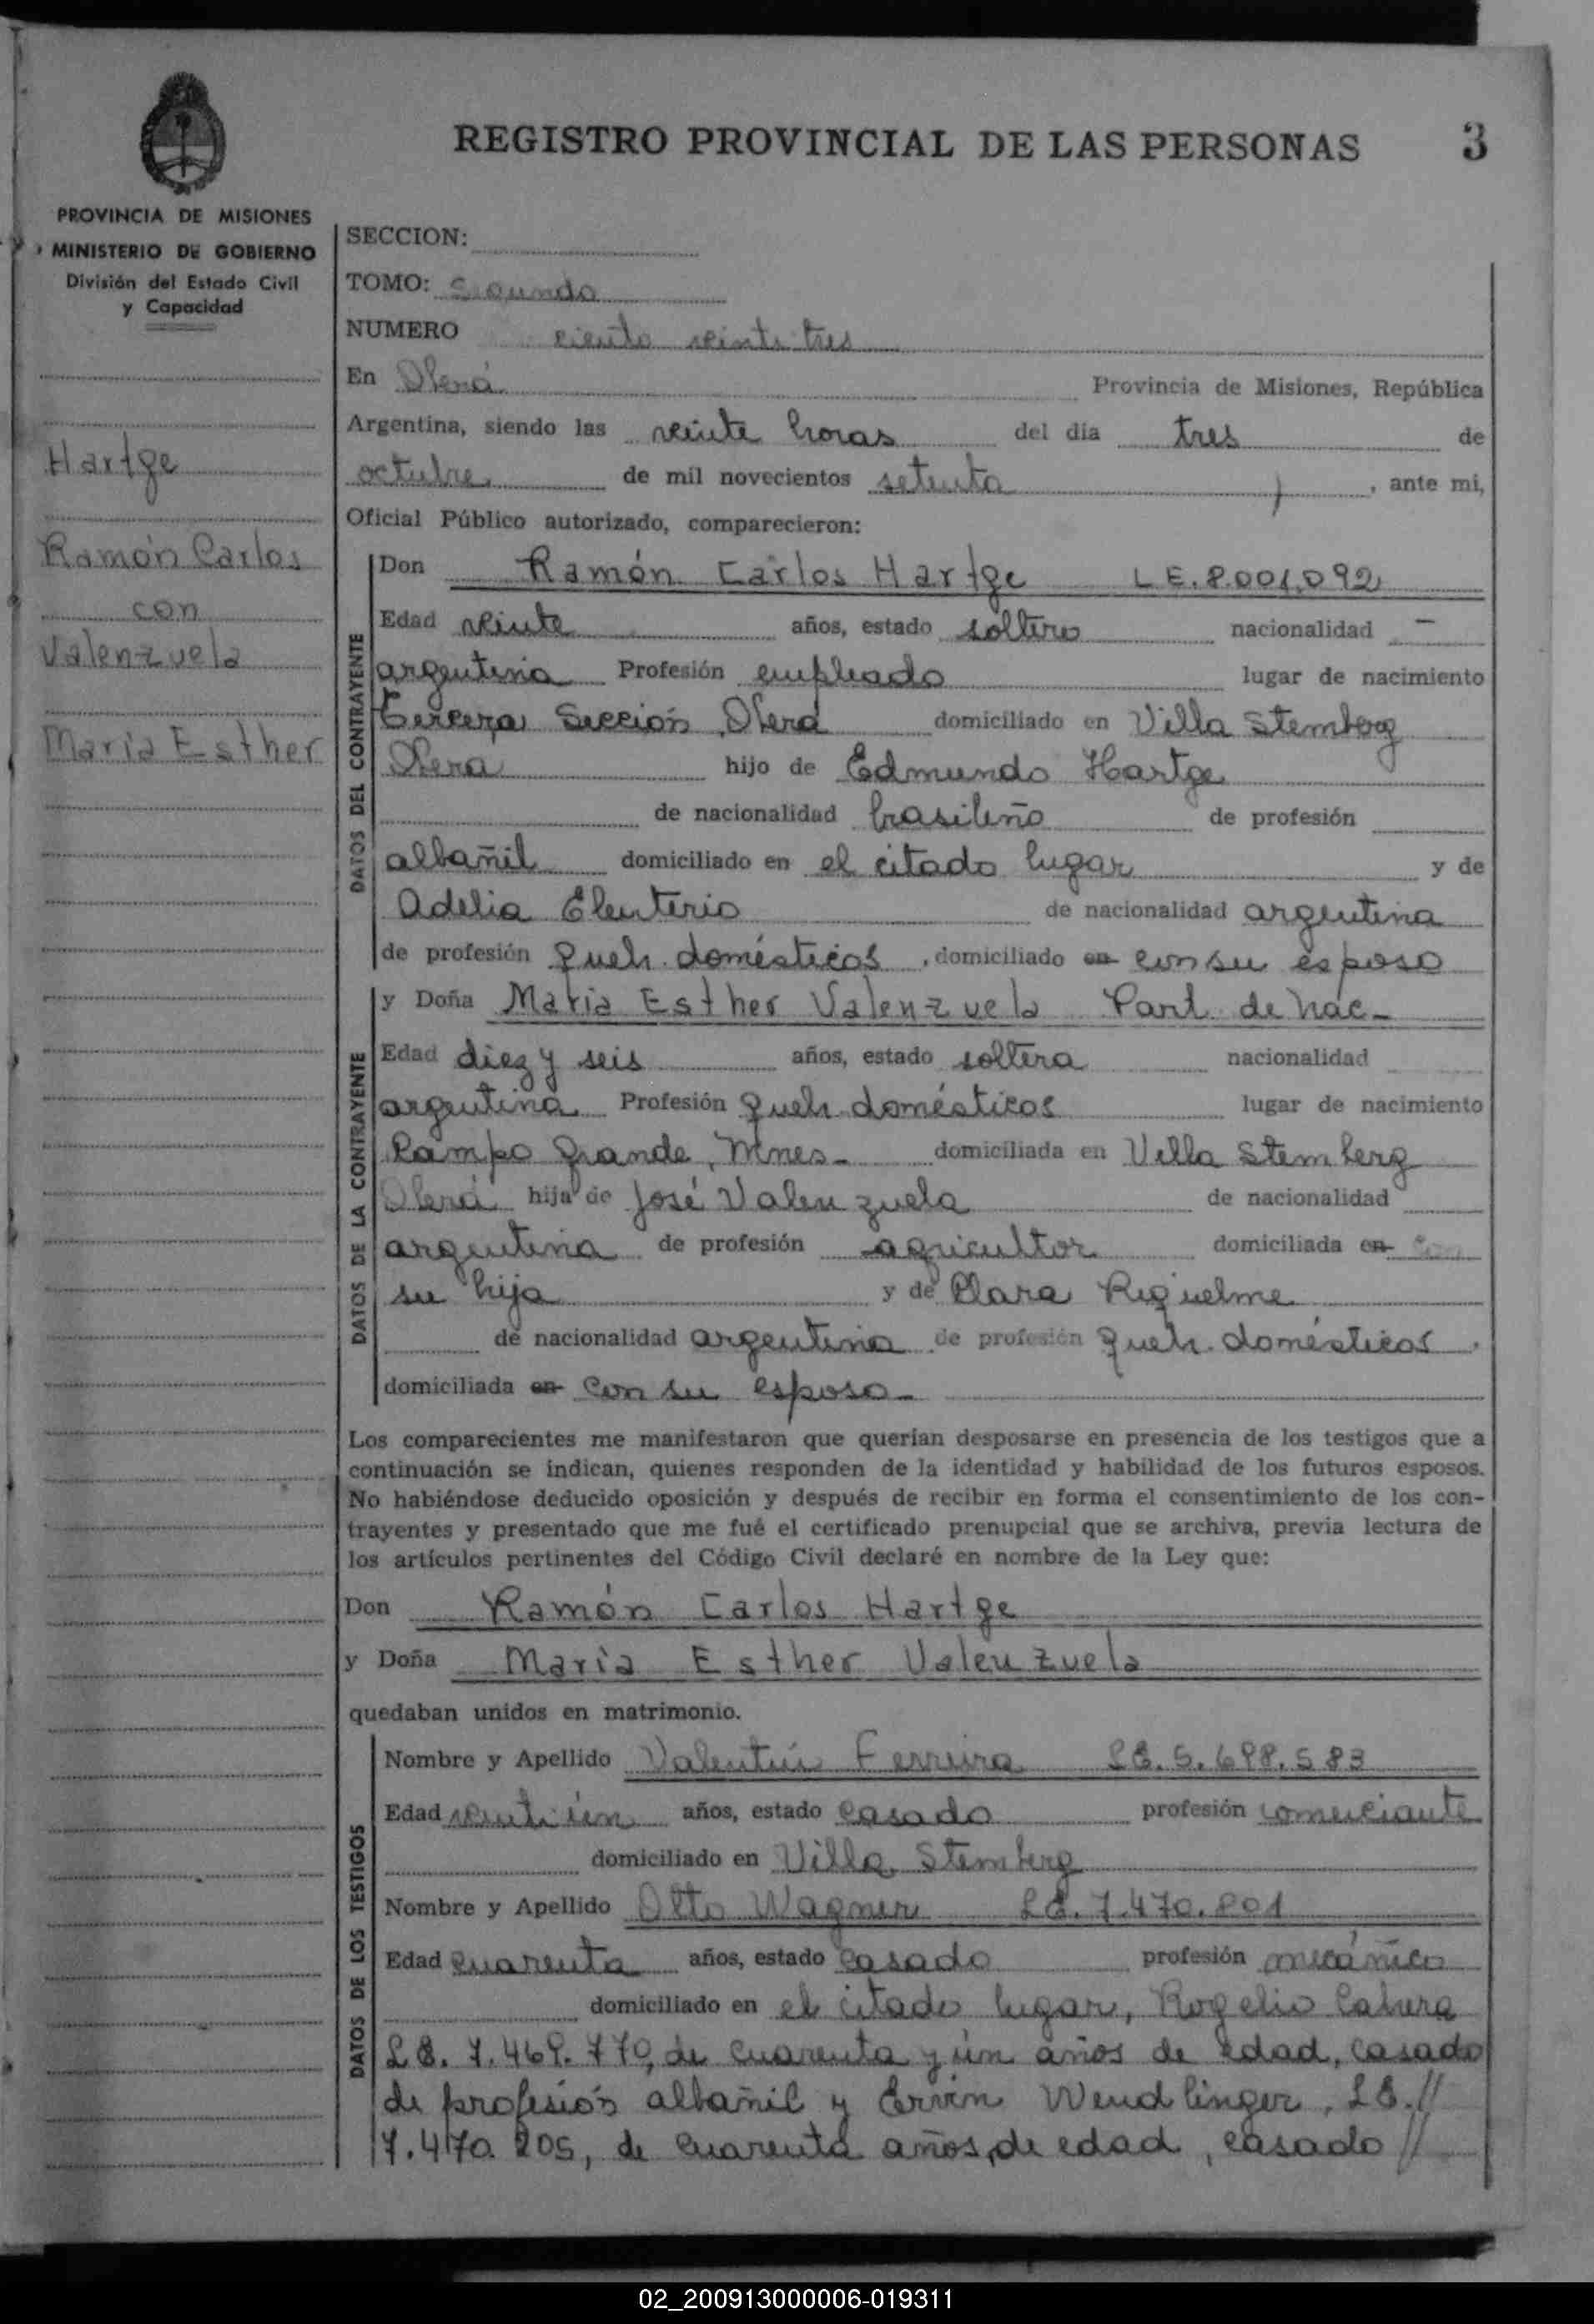 REGISTRO PROVINCIAL DE LAS PERSONAS 3
PROVINCIA DE MISIONES
MINISTERIO DE GOBIERNO
División del Estado Civil
y Capacidad
Hartge
Ramón Carlos
con
Valenzuela
María Esther
SECCION:
TOMO: Segundo
NUMERO ciento veinte tres
En Oberá Provincia de Misiones, República
Argentina, siendo las veinte horas del día tres de
octubre de mil novecientos setenta , ante mi,
Oficial Público autorizado, comparecieron:
DATOS DEL CONTRAYENTE
Don Ramón Carlos Hartge L E. 8.001.092
Edad veinte años, estado soltero nacionalidad —
argentina Profesión empleado lugar de nacimiento
Tercera Sección, Oberá domiciliado en Villa Stemberg
Oberá hijo de Edmundo Hartge
de nacionalidad brasileño de profesión
albañil domiciliado en el citado lugar y de
Adelia Eleuterio de nacionalidad argentina
de profesión Queh. domésticos , domiciliado en con su esposo
DATOS DE LA CONTRAYENTE
y Doña María Esther Valenzuela Part. de nac-
Edad diez y seis años, estado soltera nacionalidad
argentina Profesión Queh. domésticos lugar de nacimiento
Campo Grande, Mnes- domiciliada en Villa Stemberg
Oberá hija de José Valenzuela de nacionalidad
argentina de profesión agricultor domiciliada en con
su hija y de Clara Riquelme
de nacionalidad argentina de profesión Queh. domésticos ,
domiciliada en con su esposo-
Los comparecientes me manifestaron que querían desposarse en presencia de los testigos que a
continuación se indican, quienes responden de la identidad y habilidad de los futuros esposos.
No habiéndose deducido oposición y después de recibir en forma el consentimiento de los con-
trayentes y presentado que me fué el certificado prenupcial que se archiva, previa lectura de
los artículos pertinentes del Código Civil declaré en nombre de la Ley que:
Don Ramón Carlos Hartge
y Doña María Esther Valenzuela
quedaban unidos en matrimonio.
DATOS DE LOS TESTIGOS
Nombre y Apellido Valentín Ferreira LE. 5.698.583
Edad veintiún años, estado casado profesión comerciante
domiciliado en Villa Stemberg
Nombre y Apellido Otto Wagner LE. 7.470.801
Edad cuarenta años, estado casado profesión mecánico
domiciliado en el citado lugar, Rogelio Cabrera
LE. 7.469.770, de cuarenta y ún años de edad, casado
de profesión albañil y Ervin Wendlinger, LE.//
7.470.205, de cuarenta años de edad, casado //
02_200913000006-019311